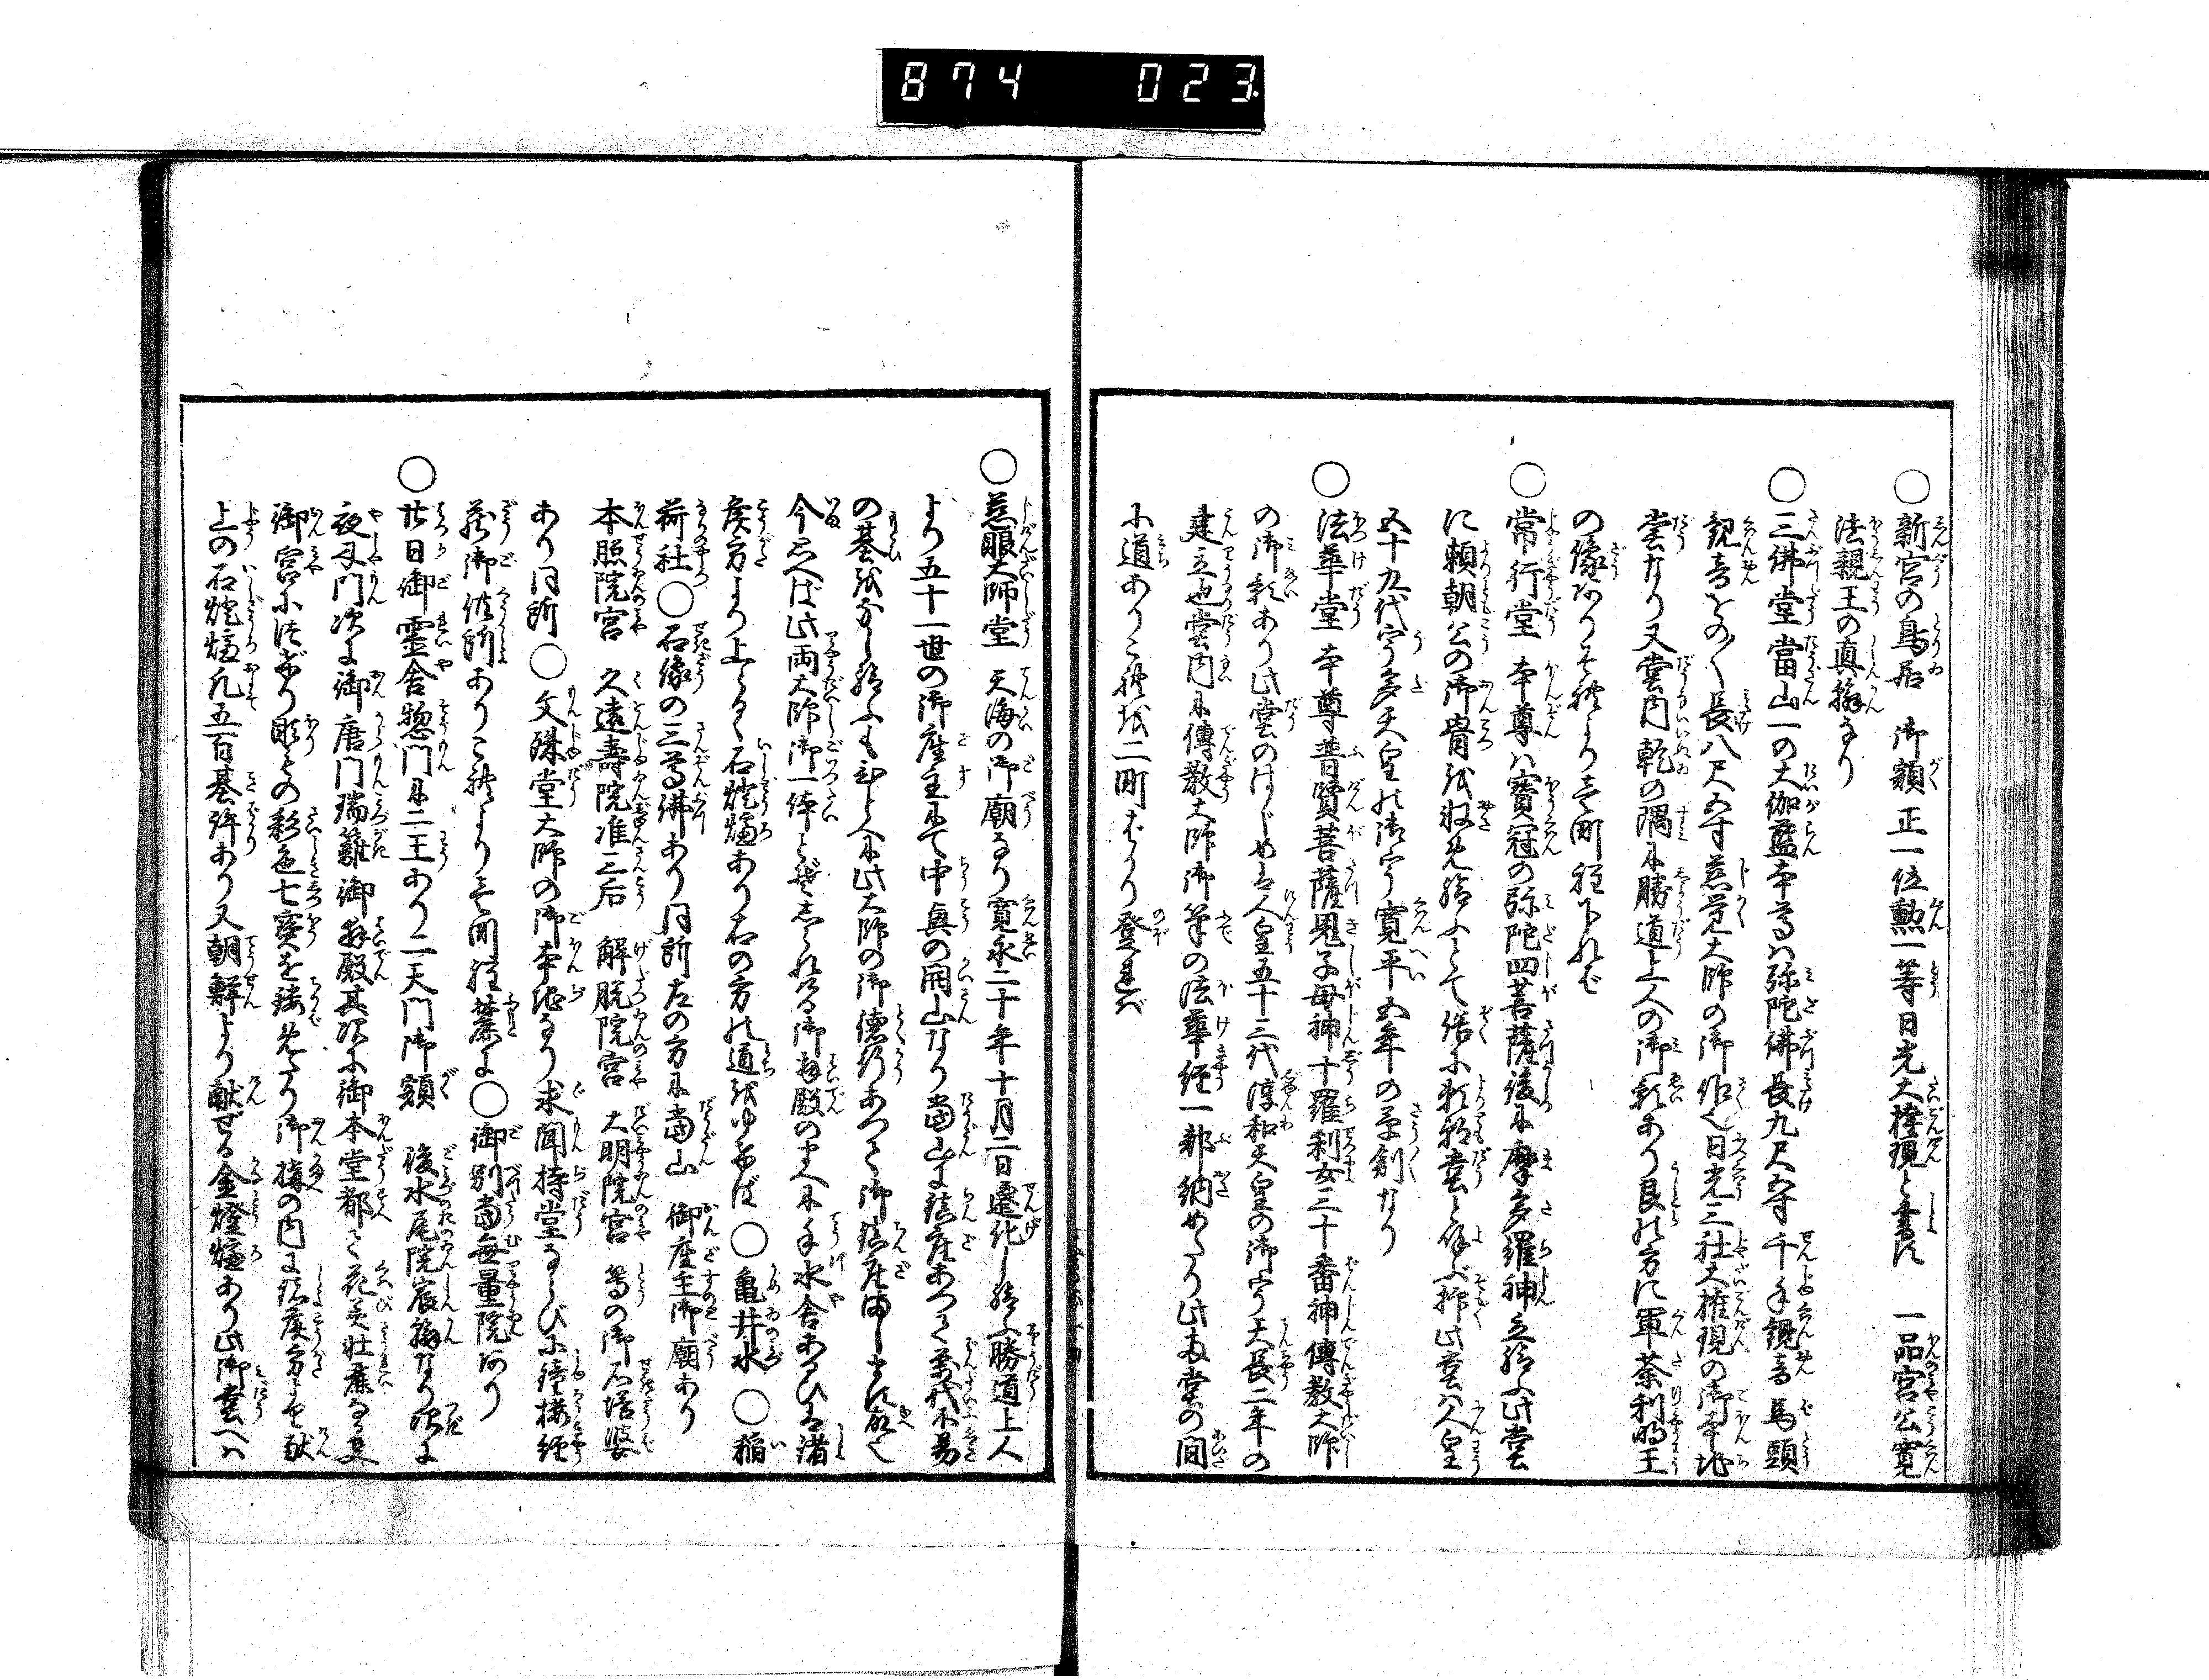 874 023
○新宮の鳥居 御額 正一位勲一等日光大権現と書す 一品宮公寛
法親王の真翰なり
○三佛堂 當山一の大伽藍本尊ハ弥陀佛長九尺五寸 千手観音 馬頭
観音をの〱長八尺五寸慈覚大師の御作也日光三社大権現の御本地
堂なり又堂内乾の隅に勝道上人の御影あり艮の方に軍荼利明王
の像ありそれより壱町程下れば
○常行堂 本尊ハ寳冠の弥陀四菩薩後に摩多羅神立給ふ此堂
に頼朝公の御骨を収め給ふとて俗に頼朝堂と呼ぶ抑此堂ハ人皇
五十九代宇多天皇の御宇寛平五年の草創なり
○法華堂 本尊普賢菩薩鬼子母神十羅刹女三十番神傳教大師
の御影あり此堂のはじめは人皇五十三代淳和天皇の御宇天長二年の
建立也堂内に傳教大師御筆の法華経一部納めたり此両堂の間
に道ありこれを二町ばかり登れば
○慈眼大師堂 天海の御廟なり寛永二十年十月二日遷化し給ふ勝道上人
より五十一世の御座主にて中興の開山なり當山に鎮座あつて萬代不易
の基をなし給ふもひとへに此大師の御徳行あつく御鎮座ましますに故也
今思へば此両大師御一体とぞしられける御拝殿の左に手水舎あるひは諸
矦方より上らるゝ石燈爐あり右の方の道をゆけば ○亀井水 ○稲
荷社 ○石像の三尊佛あり同所左の方に當山 御座主御廟あり
本照院宮 久遠壽院准三后 解脱院宮 大明院宮 等の御石塔婆
あり同所 ○文殊堂大師の御本地なり求聞持堂ならびに鐘楼経
蔵御供所ありこれより壱町程麓に ○御別當無量院あり
○廿日御霊舎惣門に二王あり二天門御額 後水尾院宸翰なり次に
夜叉門次に御唐門瑞籬御拝殿其次に御本堂都て花美壮麗なる事
御宮につゞけり彫もの彩色七寳を鏤めたり御構の内に諸矦方より献
上の石燈爐凡五百基許あり又朝鮮より献ぜる金燈爐あり此御堂へハ